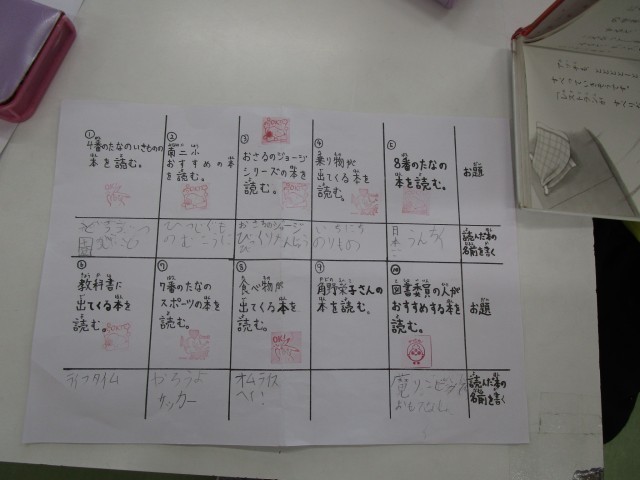 ①
4番のたなのいきものの
本を読む。
②
南二小
おすすめの本
を読む。
③
おさるのジョージ
シリーズの本を
読む。
④
乗り物が
出てくる本を
読む。
⑤
8番のたなの
本を読む。
お題
どうぶつ
ひつじぐも
のむこうに
おさるのジョージ
いちにち
のりもの
日本一
読んだ本の
名前を書く
⑥
教科書に
出てくる本を
読む。
⑦
7番のたなの
スポーツの本を
読む。
⑧
食べ物が
出てくる本を
読む。
⑨
角野栄子さんの
本を読む。
⑩
図書委員の人が
おすすめする本を
読む。
お題
ライフタイム
やろうよ
サッカー
オムライス
ヘイ!
おもてなし
読んだ本の
名前を書く